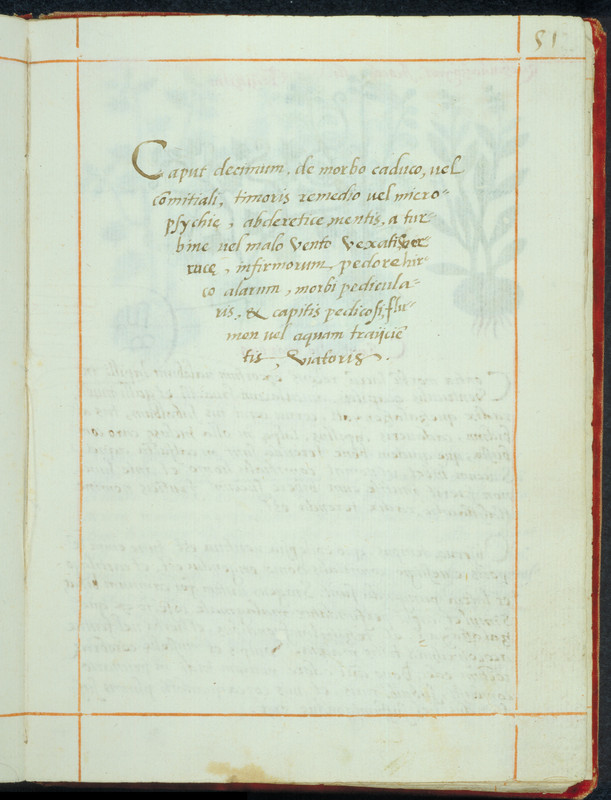 51
Caput decimum, de morbo caduco, vel
comitiali, timoris remedio vel micro=
psychię, abderetice mentis, a tur=
bine vel malo vento vexati, ver
rucę, infirmorum pedore hir=
co alarum, morbi pedicula=
ris, & capitis pedicosi, flu=
men vel aquam traijciē
tis, viatoris.